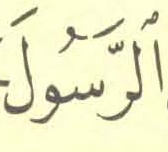 اُلرَّسُولَ